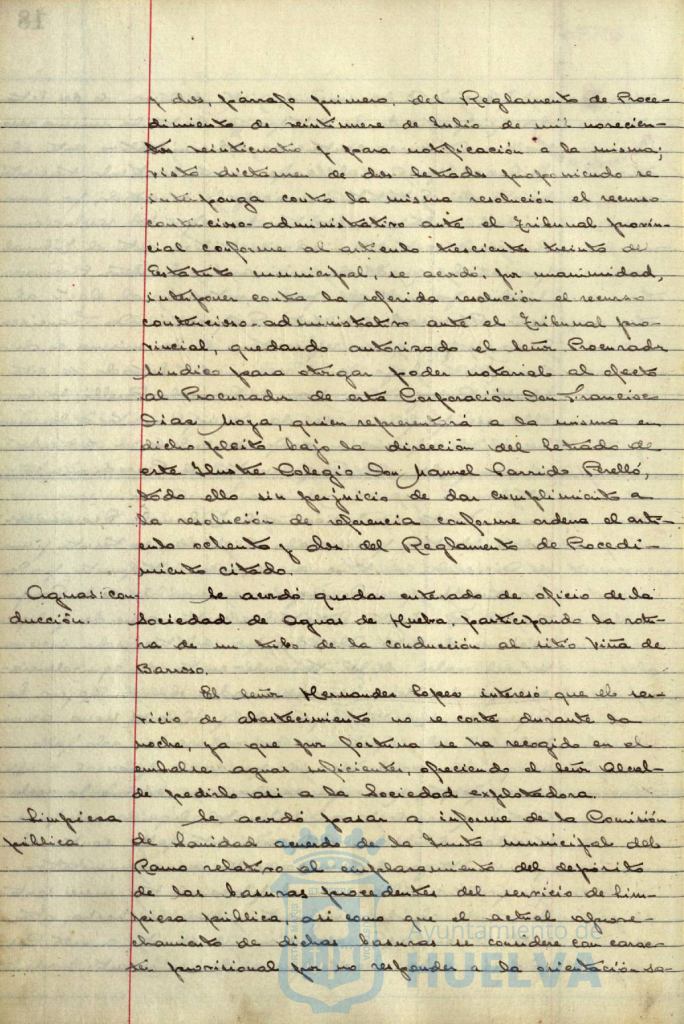 y dos, párrafo primero, del Reglamento de Proce-
dimiento de veintitres de Julio de mil novecien-
tos veinticuatro y para notificación a la misma;
visto dictamen de dos letrados proponiendo se
interponga contra la misma resolución el recurso
contencioso-administrativo ante el Tribunal provin-
cial conforme al articulo trescientos treinta del
Estatuto municipal, se acordó, por unanimidad,
interponer contra la referida resolución el recurso
contencioso-administrativo ante el Tribunal pro-
vincial, quedando autorizado el Señor Procurador
Síndico para otorgar poder notarial al efecto
al Procurador de esta Corporación Don Francisco
Díaz Moya, quien representará a la misma en
dicho pleito bajo la dirección del Letrado de
este Ilustre Colegio Don Manuel Garrido Perelló,
todo ello sin perjuicio de dar cumplimiento a
la resolución de referencia conforme ordena el artí-
culo ochenta y dos del Reglamento de Procedi-
miento citado.
Aguas: con-
ducción.
Se acordó quedar enterado de oficio de la
Sociedad de Aguas de Huelva, participando la rotu-
ra de un tubo de la conducción al sitio Viña de
Barroso.
El Señor Hernandez Lopez interesó que el ser-
vicio de abastecimiento no se corte durante la
noche, ya que por fortuna se ha recogido en el
embalse aguas suficientes, ofreciendo el Señor Alcal-
de pedirlo asi a la Sociedad explotadora.
Limpieza
pública
Se acordó pasar a informe de la Comisión
de Sanidad acuerdo de la Junta municipal del
Ramo relativo al emplazamiento del depósito
de las basuras procedentes del servicio de lim-
pieza pública, asi como que el actual aprove-
chamiento de dichas basuras se considere con carac-
ter provisional por no responder a la orientación sa-
18
Ayuntamiento de
HUELVA